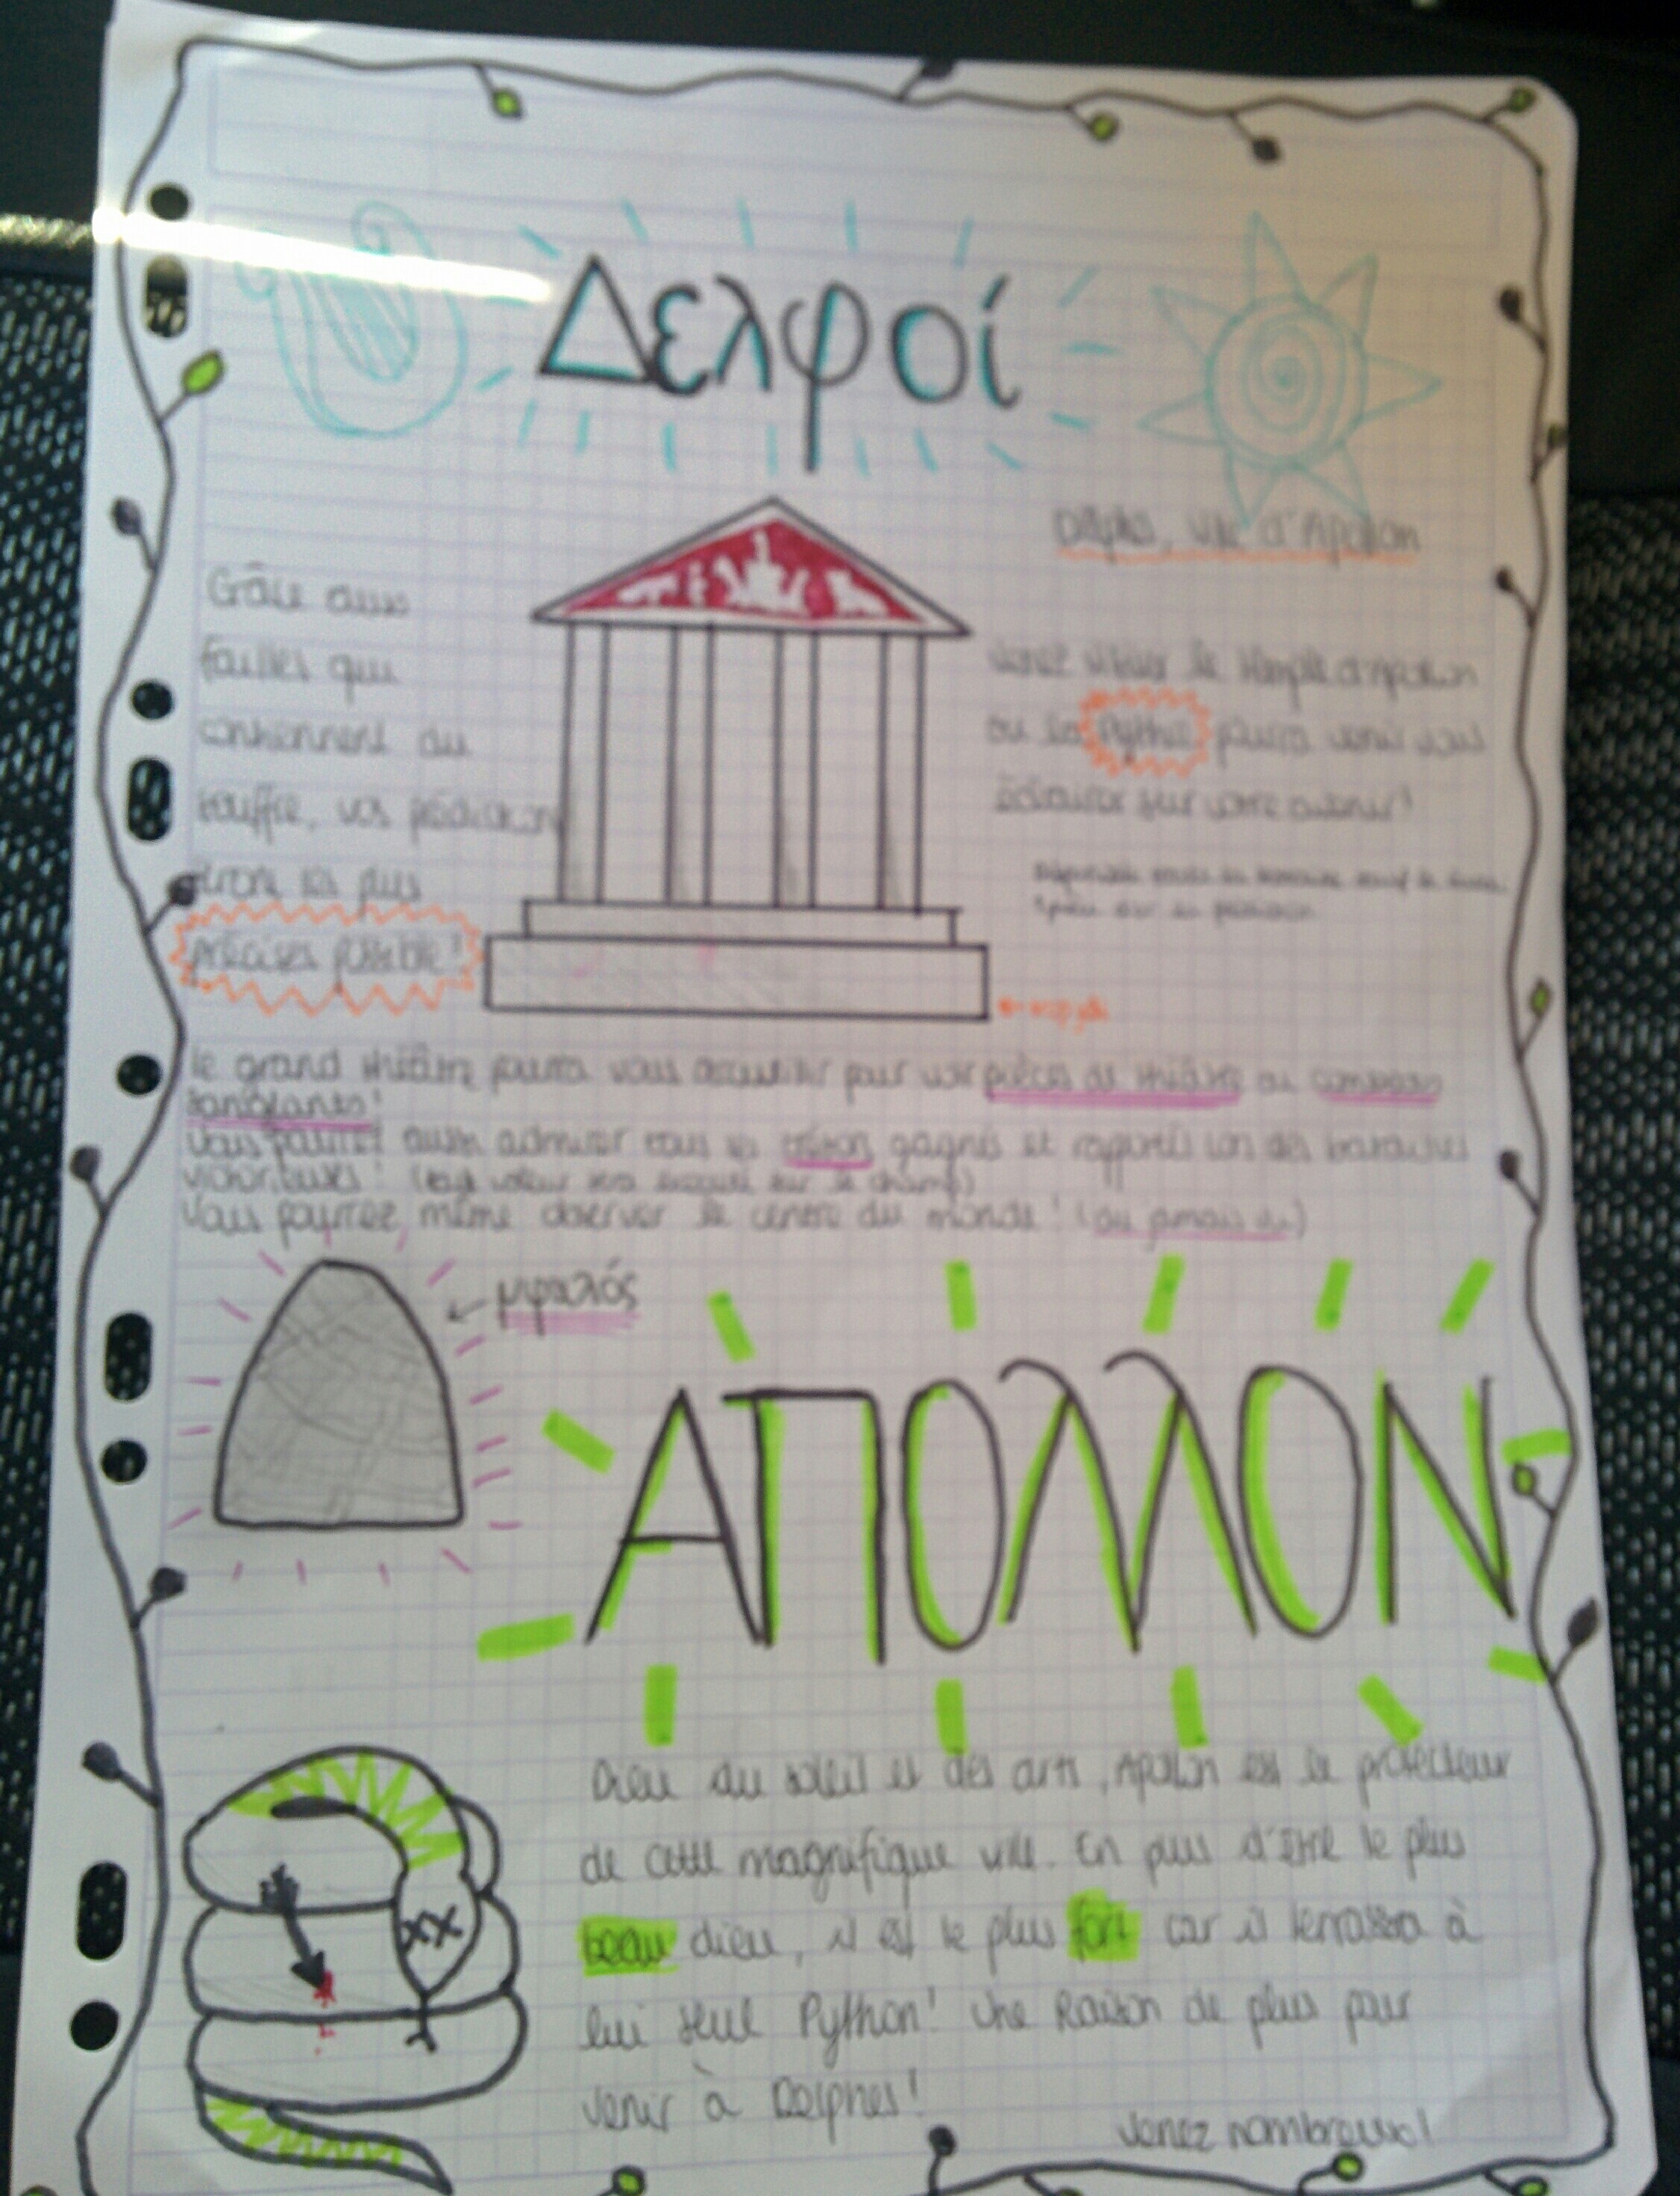 Δελφοί
Delphes, ville d'Apollon
Grâce aux
failles qui
contiennent du
souffre, vos prédictions
seront les plus
précises possible!
venez visiter le temple d'Apollon
ou la Pythie pourra venir vous
éclairer sur votre avenir!
Le grand théâtre pourra vous accueillir pour vos pièces de théâtre ou combats
sanglants!
Vous pourrez aussi admirer tous les trésors gagnés et rapportés lors des batailles
victorieuses! (tout voleur sera exécuté sur le champ)
Vous pourrez même observer le centre du monde! (du jamais vu)
μφαλός
ΑΠΟΛΛΟΝ
Dieu du soleil et des arts, Apollon est le protecteur
de cette magnifique ville. En plus d'être le plus
beau dieu, il est le plus fort car il terrassa à
lui seul Python! Une Raison de plus pour
venir à Delphes!
Venez nombreux!